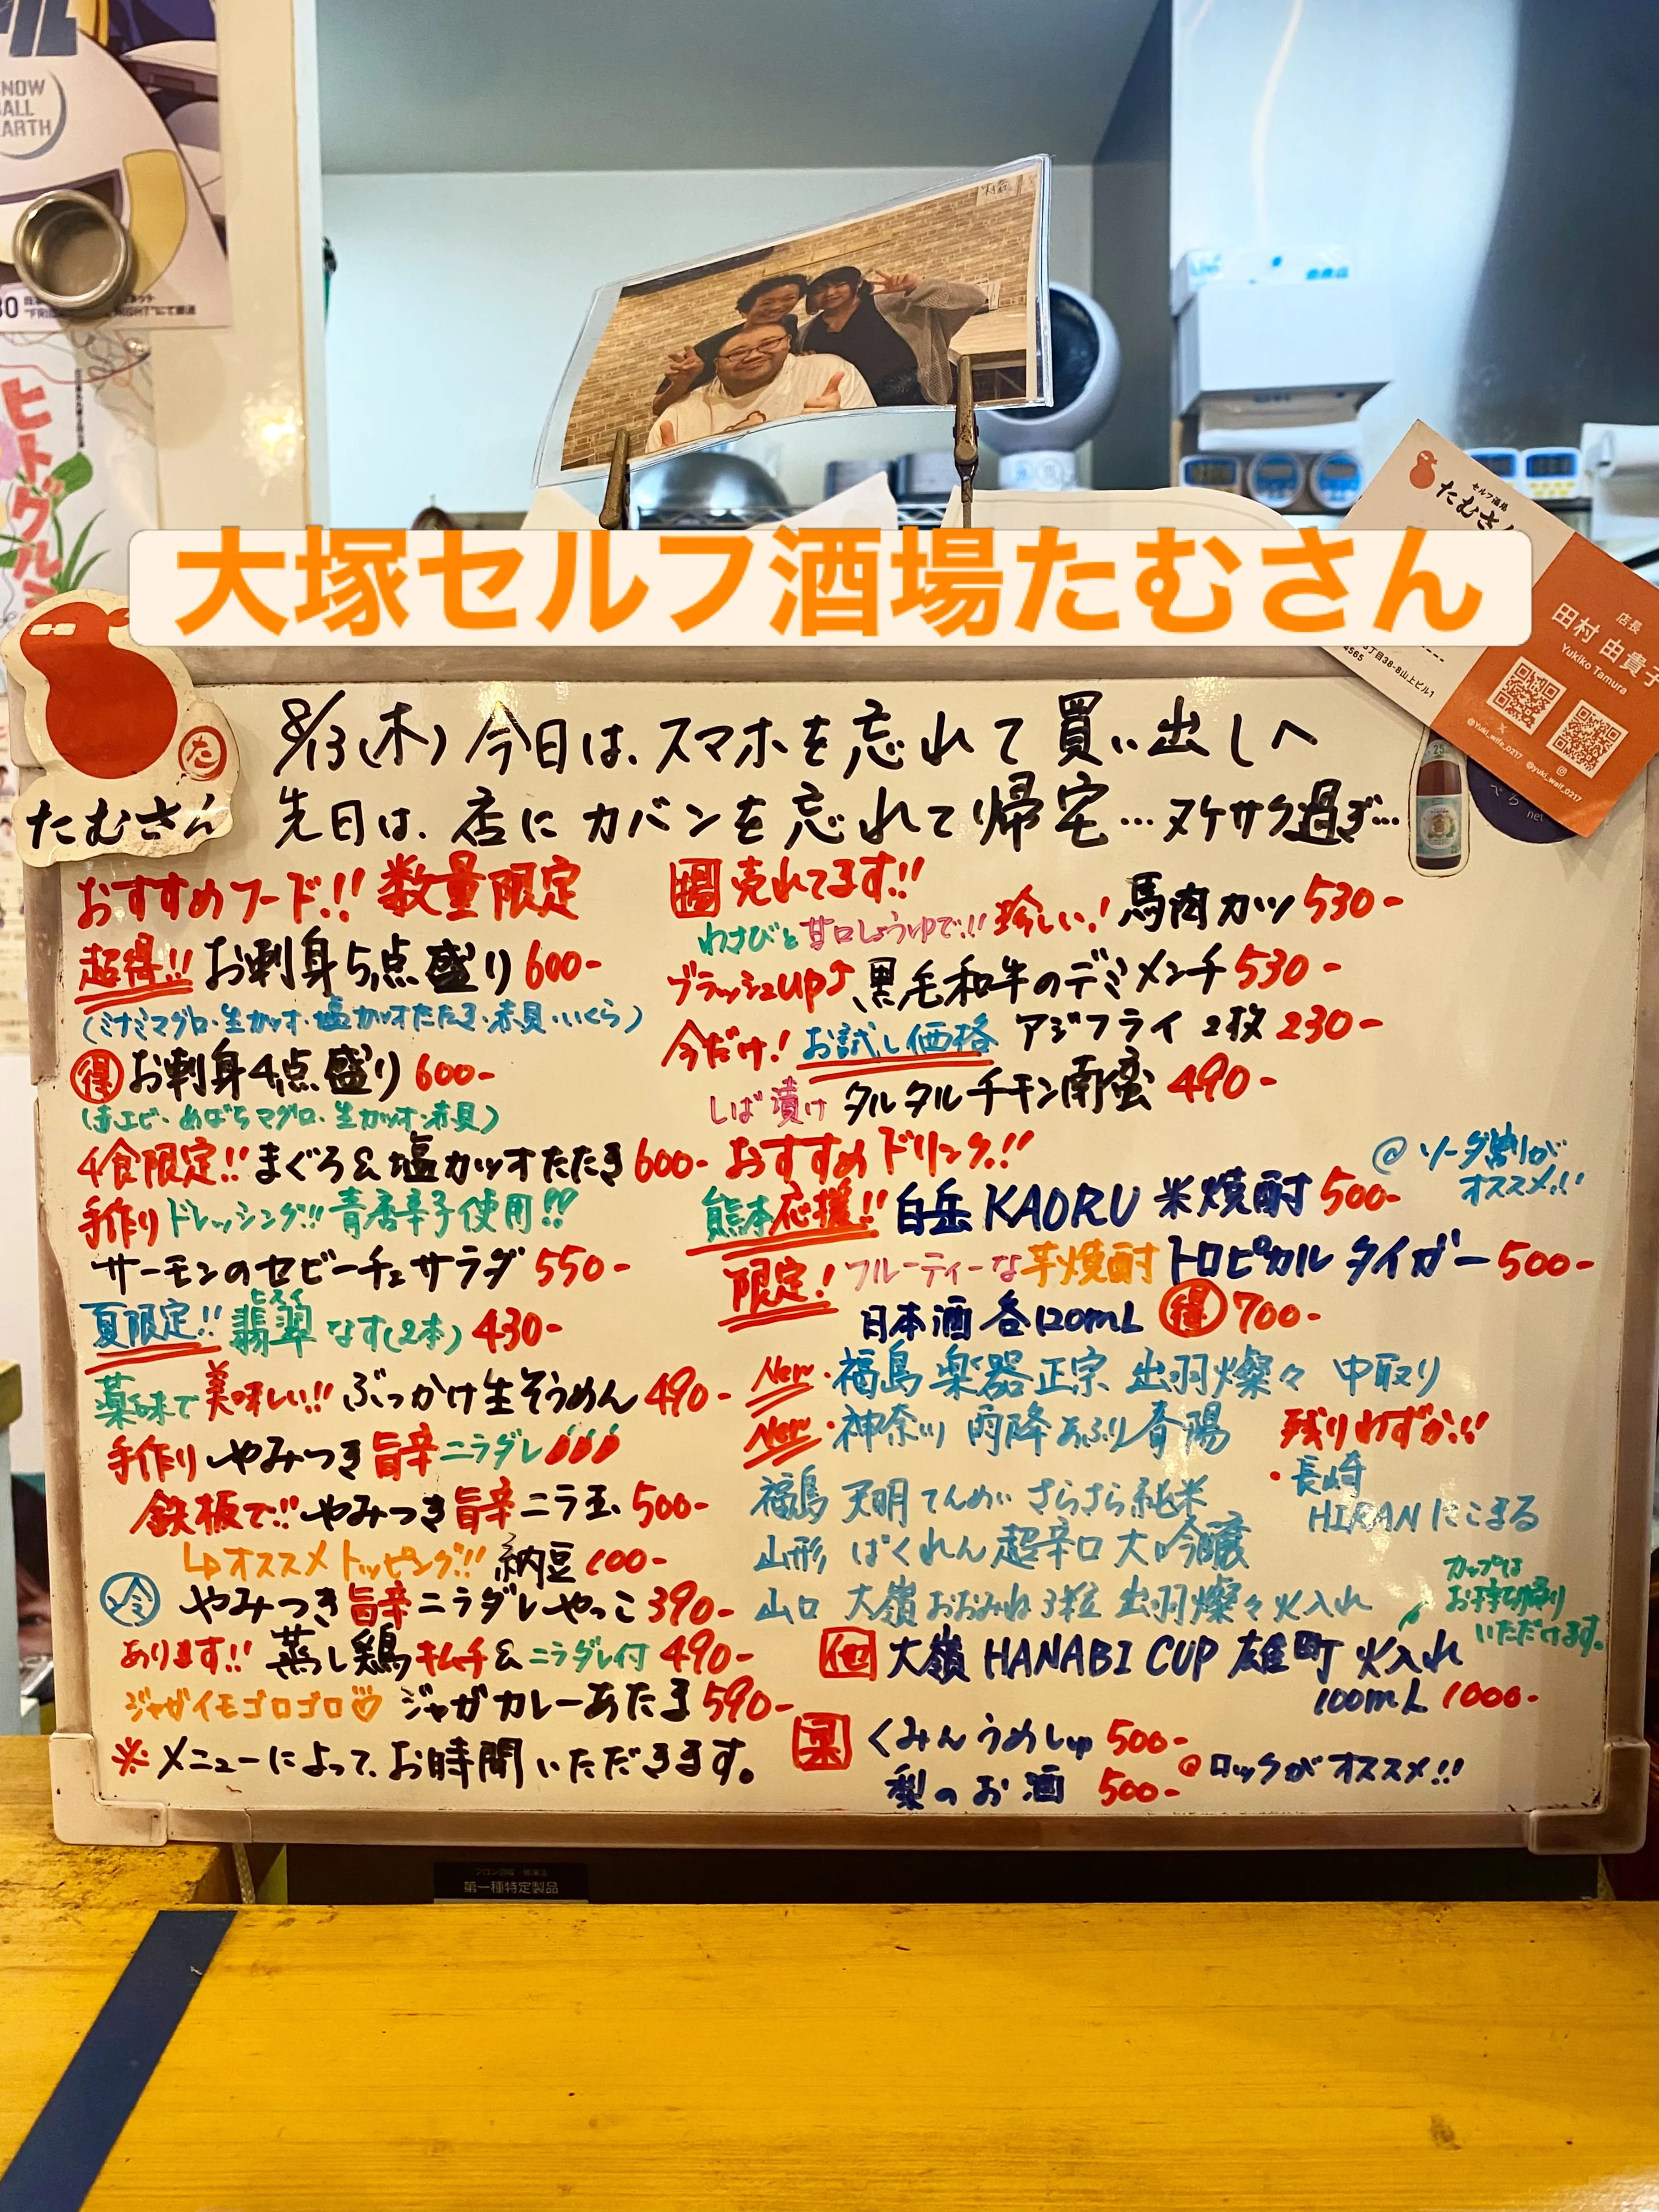 SNOW
BALL
EARTH
ヒトグルミ
セルフ酒場
たむさん
大塚セルフ酒場たむさん
店長
田村 由貴子
Yukiko Tamura
@yuki_wall_0217
たむさん
8/13(木) 今日は、スマホを忘れて買い出しへ
先日は、店にカバンを忘れて帰宅…ヌケサク過ぎ…
おすすめフード!! 数量限定
超得!! お刺身5点盛り 600-
(ミナミマグロ・生カツオ・塩カツオたたき・赤貝・いくら)
得 お刺身4点盛り 600-
(赤エビ・めばちマグロ・生カツオ・赤貝)
4食限定!! まぐろ&塩カツオたたき 600-
手作りドレッシング!! 青唐辛子使用!!
サーモンのセビーチェサラダ 550-
夏限定!! 翡翠ヒスイなす(2本) 430-
薬味で美味しい!! ぶっかけ生そうめん 490-
手作り やみつき旨辛ニラダレ
鉄板で!! やみつき旨辛ニラ玉 500-
↳オススメトッピング!! 納豆 100-
冷 やみつき旨辛ニラダレやっこ 390-
あります!! 蒸し鶏キムチ&ニラダレ付 490-
ジャガイモゴロゴロ♡ ジャガカレーあたま 590-
※メニューによって、お時間いただきます。
揚 売れてます!!
わさびと甘口しょうゆで!! 珍しい! 馬肉カツ 530-
ブラッシュup♪ 黒毛和牛のデミメンチ 530-
今だけ! お試し価格 アジフライ 2枚 230-
しば漬け タルタルチキン南蛮 490-
おすすめドリンク!!
@ソーダ割りが
オススメ!!
熊本応援!! 白岳 KAORU 米焼酎 500-
限定! フルーティーな芋焼酎 トロピカルタイガー 500-
日本酒 各120mL 得 700-
New・福島 楽器正宗 出羽燦々 中取り
New・神奈川 雨降あふり 春陽
福島 天明てんめい さらさら純米
山形 ばくれん 超辛口 大吟醸
山口 大嶺おおみね 3粒 出羽燦々 火入れ
残りわずか!!
・長崎
HIRAN にこまる
カップは
お持ち帰り
いただけます。
他 大嶺 HANABI CUP 雄町 火入れ
100mL 1000-
果 くみんうめしゅ 500-
梨のお酒 500-
@ロックがオススメ!!
第一種特定製品